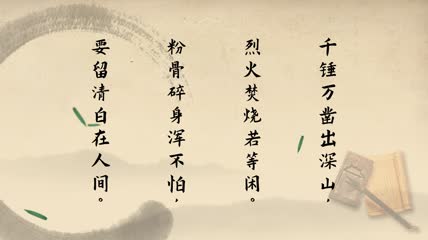 千锤万凿出深山，
烈火焚烧若等闲。
粉骨碎身浑不怕，
要留清白在人间。